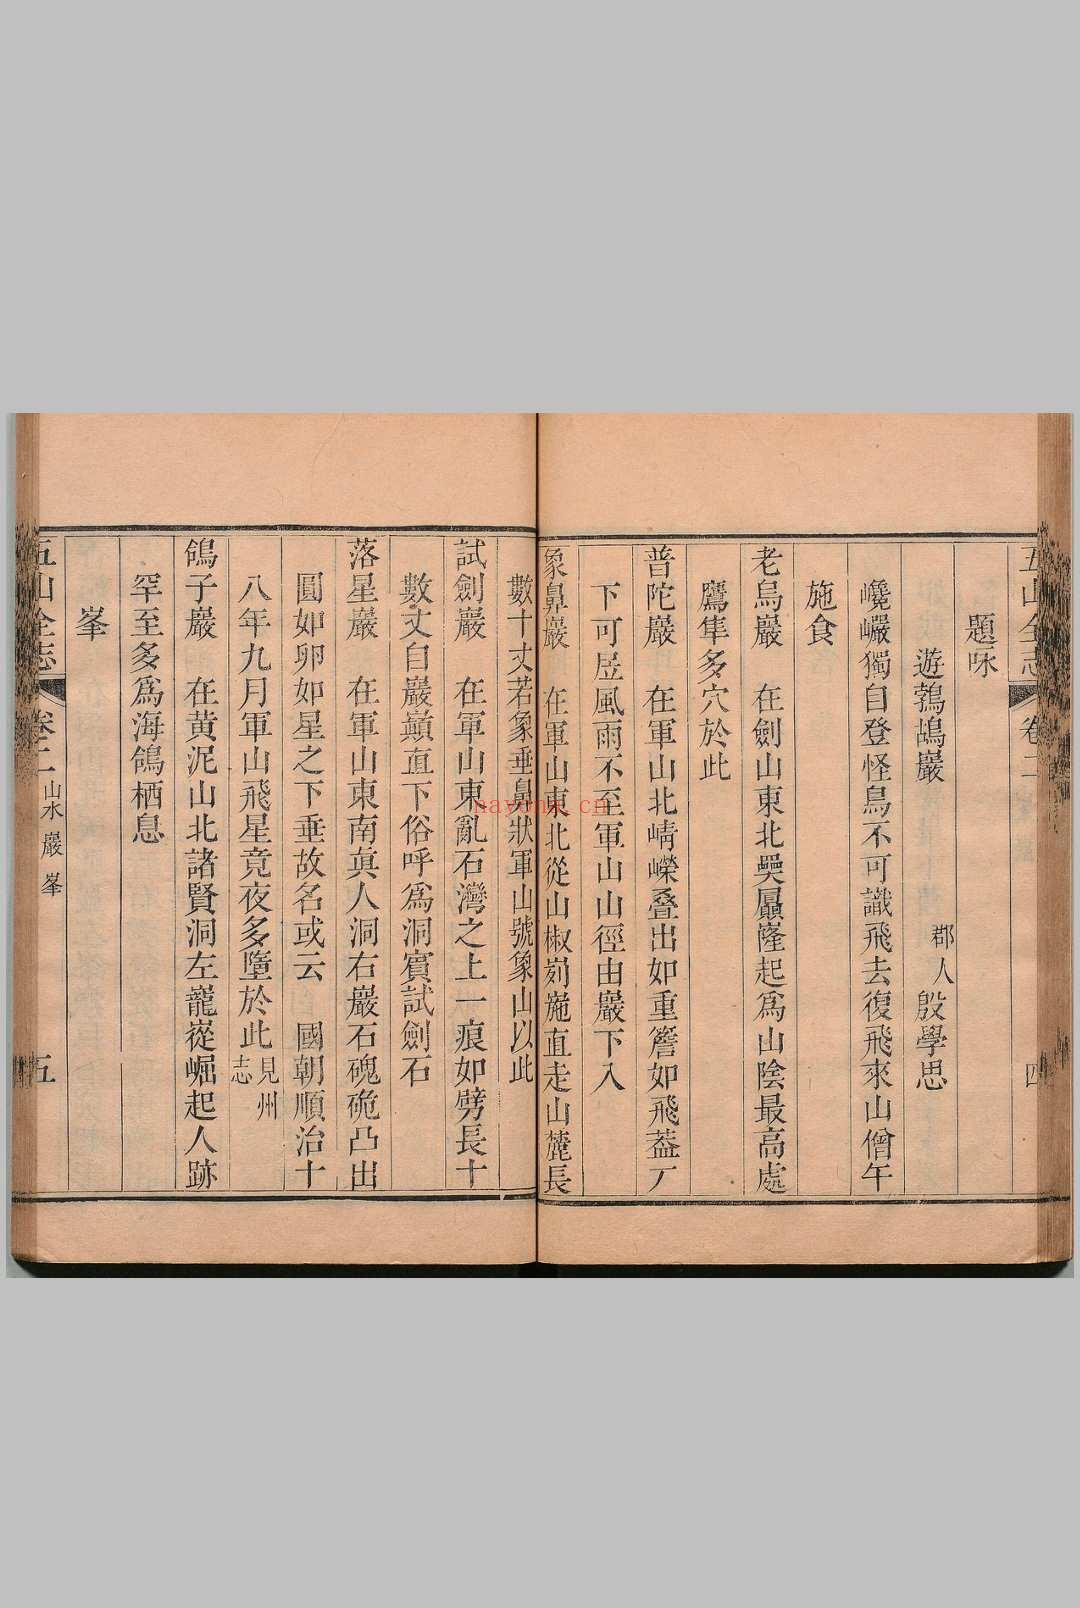 題咏
遊鵓鴣巖　郡人殷學思
巉巗獨自登怪鳥不可識飛去復飛來山僧午
施食
老烏巖　在劍山東北奰屭嶐起爲山陰最高處
鷹隼多穴於此
普陀巖　在軍山北崝嶸叠出如重簷如飛葢厂
下可居風雨不至軍山山徑由巖下入
象鼻巖　在軍山東北從山椒剡崺直走山麓長
五山全志　卷二　四
數十丈若象垂鼻狀軍山號象山以此
試劍巖　在軍山東亂石灣之上一痕如劈長十
數丈自巖巔直下俗呼爲洞賓試劍石
落星巖　在軍山東南真人洞右巖石磈硊凸出
圓如卵如星之下垂故名或云　國朝順治十
八年九月軍山飛星竟夜多墮於此見州志
鴿子巖　在黄泥山北諸賢洞左巃嵸崛起人跡
罕至多爲海鴿栖息
峯
五山全志　卷二　山水　巖　峯　五
navonx.cn